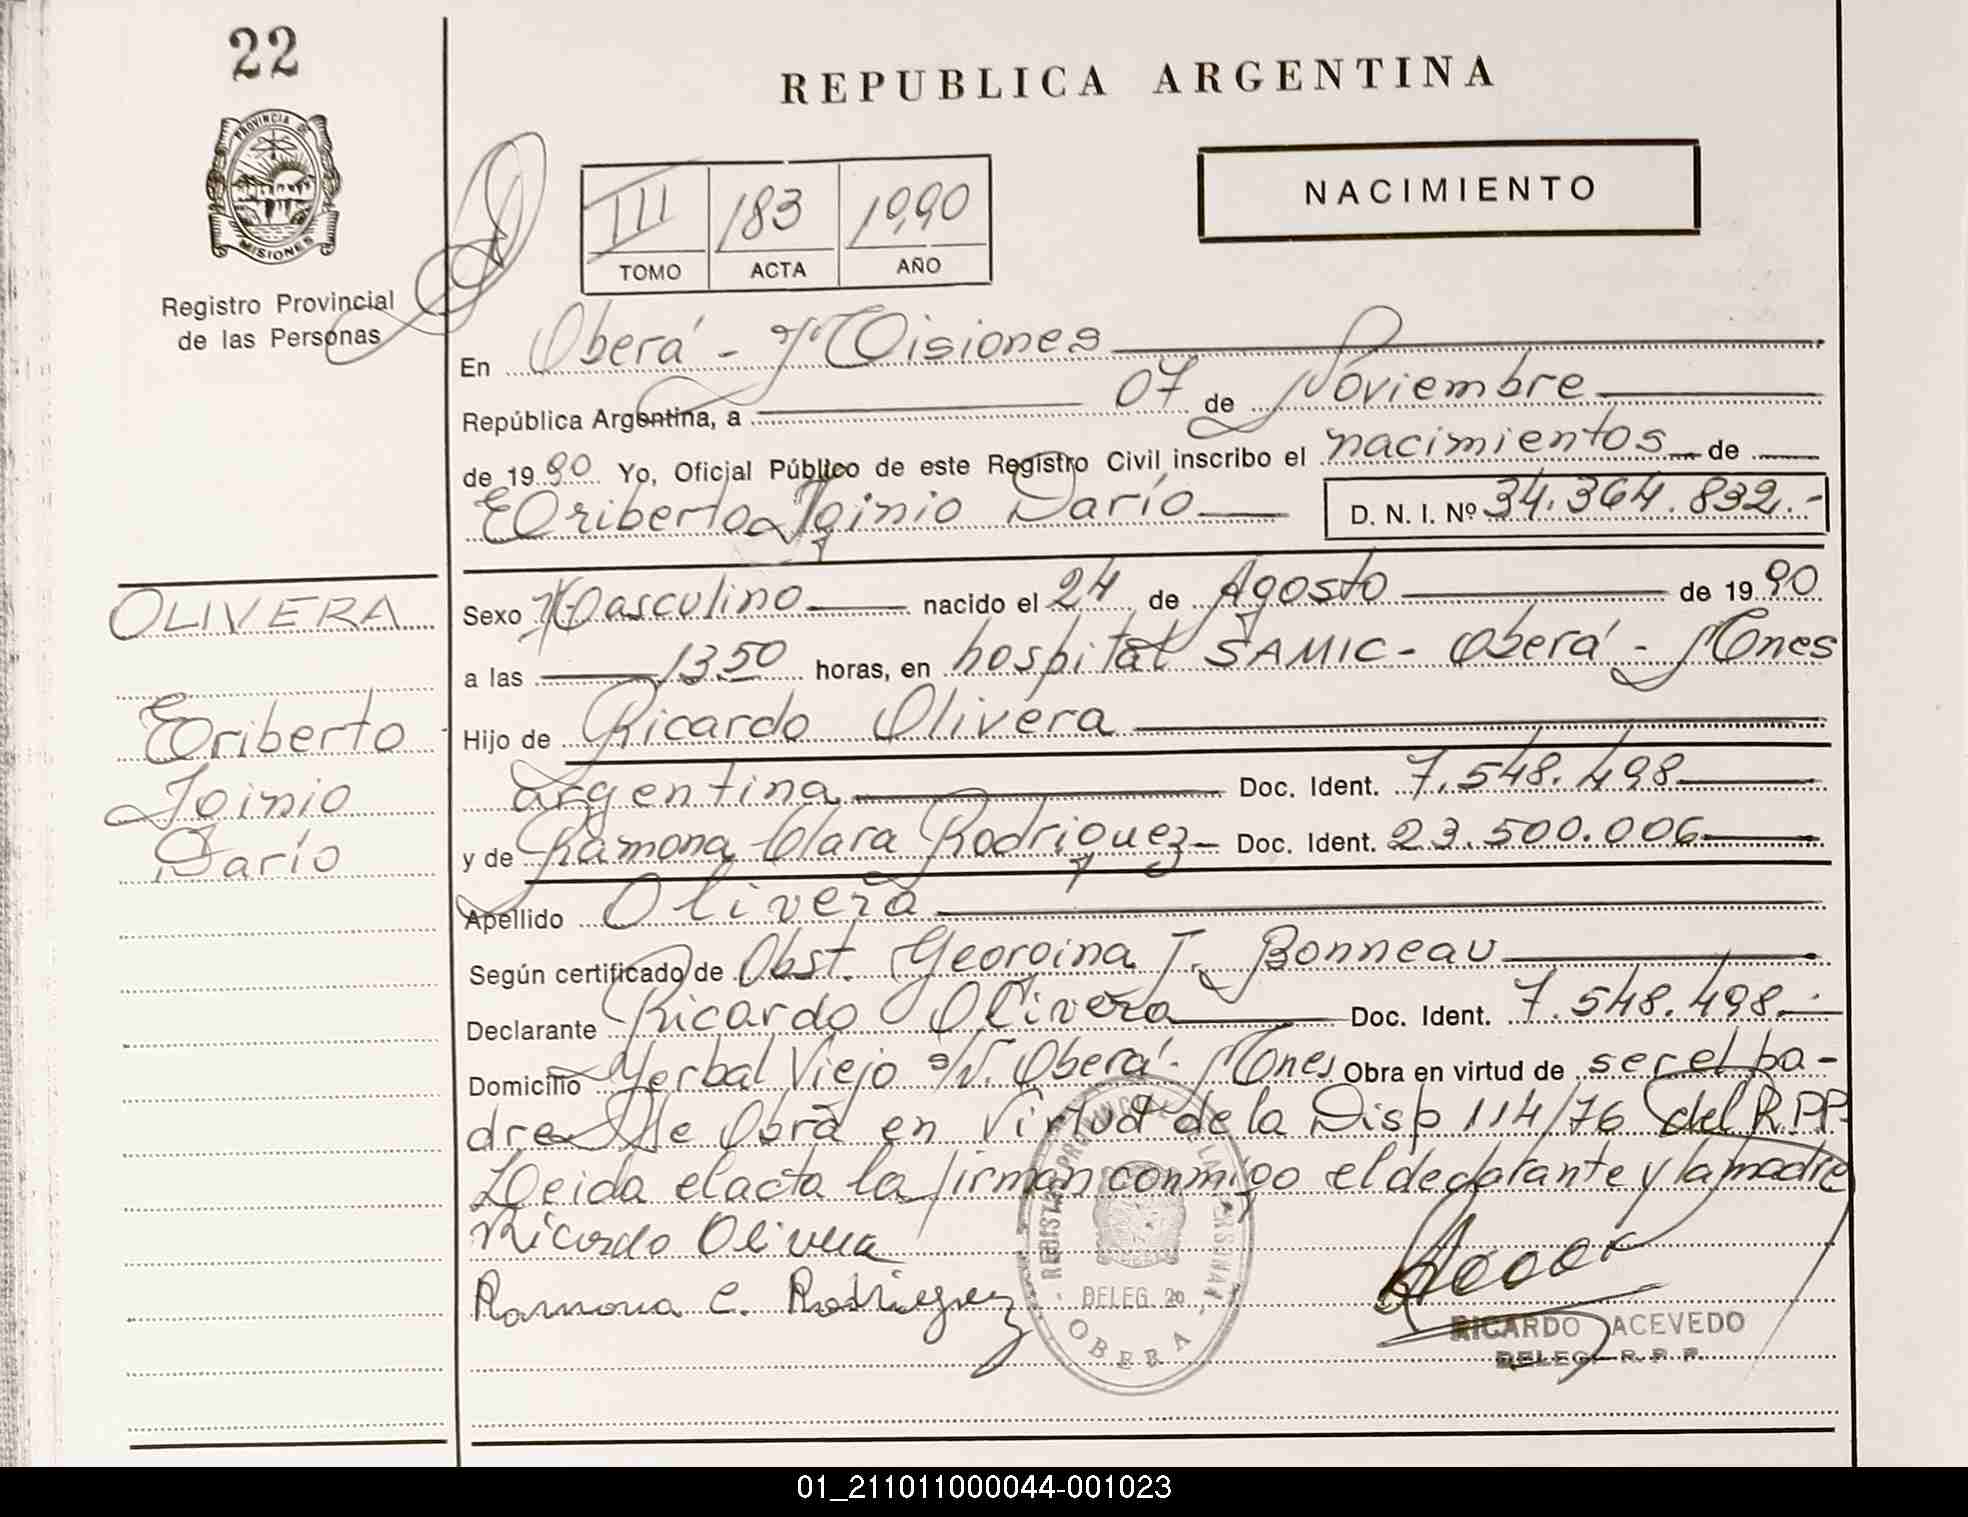 22
REPUBLICA ARGENTINA
PROVINCIA DE
MISIONES
Registro Provincial
de las Personas
III 183 1990
TOMO ACTA AÑO
NACIMIENTO
En Oberá - Misiones
República Argentina, a 07 de Noviembre
de 1990 Yo, Oficial Público de este Registro Civil inscribo el nacimientos de
Eriberto Iginio Darío D. N. I. Nº 34.364.832.-
OLIVERA
Eriberto
Iginio
Darío
Sexo Masculino nacido el 24 de Agosto de 1990
a las 13.50 horas, en hospital SAMIC - Oberá - Mnes
Hijo de Ricardo Olivera
argentina Doc. Ident. 7.548.498
y de Ramona Clara Rodriguez - Doc. Ident. 23.500.006
Apellido Olivera
Según certificado de Obst. Georgina T. Bonneau
Declarante Ricardo Olivera Doc. Ident. 7.548.498.-
Domicilio Yerbal Viejo s/N. Oberá - Mnes Obra en virtud de ser el pa-
dre Se Obra en virtud de la Disp 114/76 del R.P.P.
Leida el acta la firman conmigo el declarante y la madre
Ricardo Olivera
Ramona C. Rodriguez
REGISTRO PROVINCIAL DE LAS PERSONAS
DELEG. 20
OBERA
RICARDO ACEVEDO
DELEG. R. P. P.
01_211011000044-001023